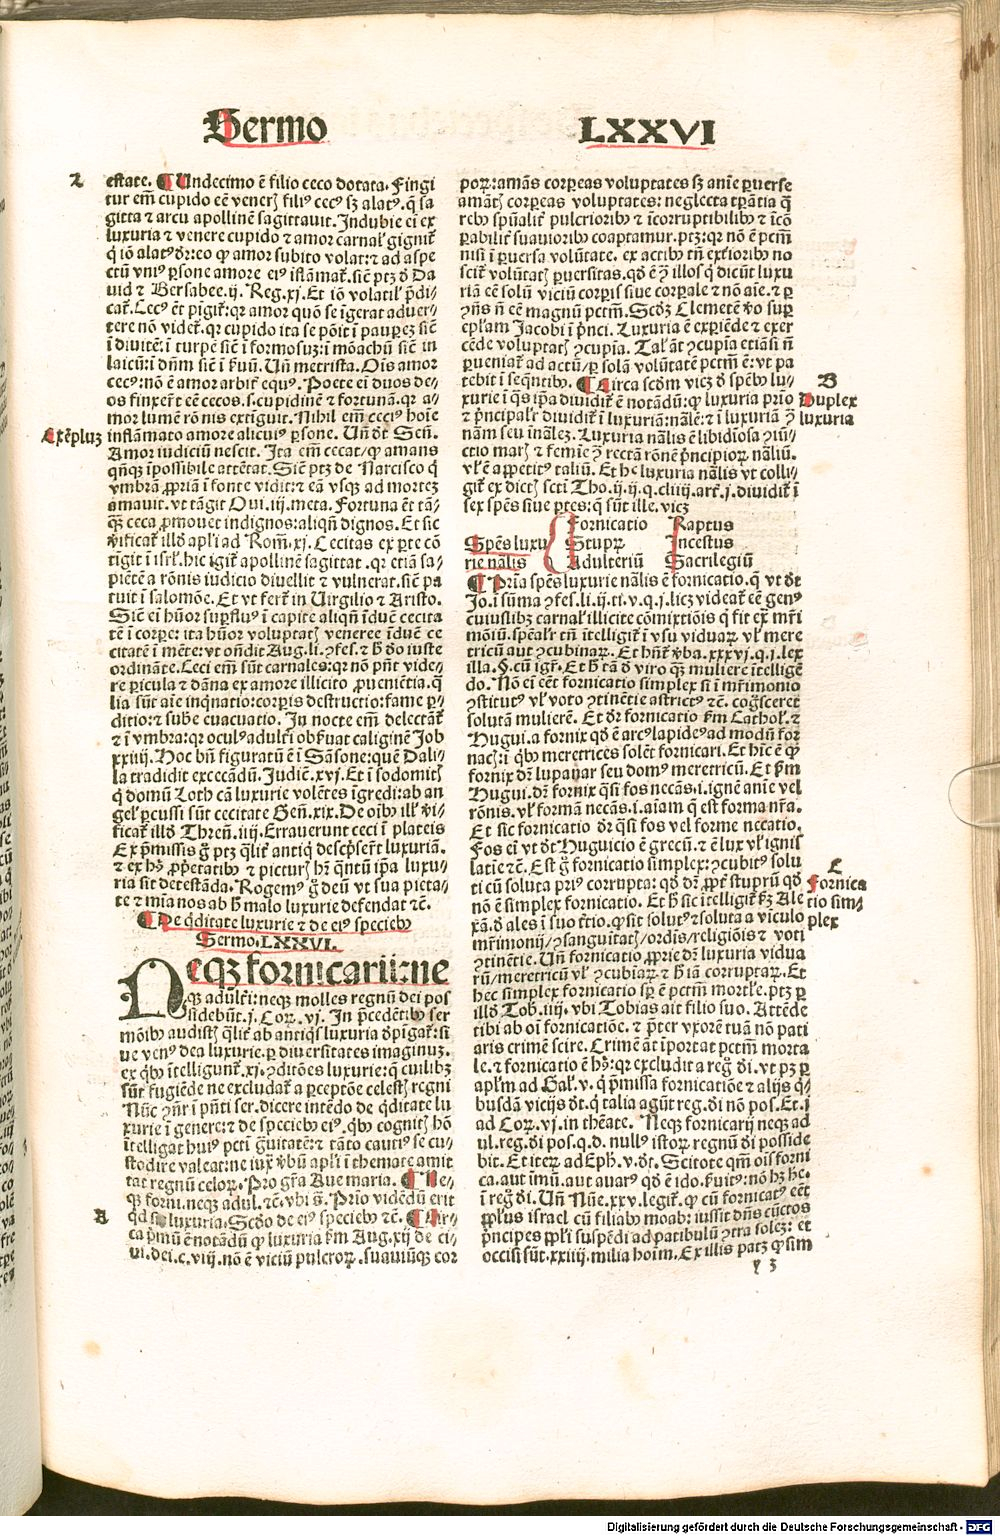 Sermo LXXVI
L
estate. ¶ Undecimo ē filio ceco dotata. Fingi
tur em̄ cupido eē venerꝭ filiꝰ cecꝰ sꝫ alatꝰ. q̇ sa
gitta ⁊ arcu apollinē sagittauit. Indubie eī ex
luxuria ⁊ venere cupido ⁊ amor carnał gignit̄
q̇ iō alatꝰ dr̄: eo ꝙ amor subito volat: ⁊ ad aspe
ctū vniꝰ ꝑsone amore eiꝰ īflāmat̄. siē ptꝫ d̄ Da
uid ⁊ Bersabee. ij. Reg. xj. Et iō volatił p̄di-
cat̄. Cecꝰ ēt pīgit̄: qꝛ amor quō se igerat aduer-
tere nō videt̄. qꝛ cupido ita se pōit ī pauꝑeꝫ siē
ī diuitē: ī turpē siē ī formosuꝫ: ī mōachū siē in
laicū: ī dn̄m siē ī ẜuū. Un̄ metrista. Oīs amor
cecꝰ: nō ē amor arbiṫ equꝰ. Poete eī duos de-
os finxerūt eē cecos. s. cupidinē ⁊ fortunā. qꝛ a-
mor lumē rōnis extīguit. Nihil em̄ ceciꝰ hoīe
Exēpluꝫ
inflāmato amore alicuiꝰ ꝑsone. Un̄ dt̄ Sen̄.
Amor iudiciū nescit. Ita em̄ cecat/ ꝙ amans
qn̄qꝫ īpossibile attētat. Siē ptꝫ de Narcisco q̇
vmbrā ꝓpriā ī fonte vidit: ⁊ eā vsqꝫ ad morteꝫ
amauit. vt tāgit Oui. iij. meta. Fortuna ēt tā-
qꝫ ceca ꝓmouet indignos: aliqn̄ dignos. Et sic
v̇ificat̄ illđ apłi ad Rom̄. xj. Cecitas ex ꝑte cō
tīgit ī isrł. hic igit̄ apollinē sagittat. qꝛ etiā sa-
piētē a rōnis iudicio diuellit ⁊ vulnerat. siē pa
tuit ī salomōe. Et vt fert̄ in Uirgilio ⁊ Aristo.
Siē ei hūor suꝑfluꝰ ī capite aliqn̄ īduē cecita
tē ī corpe: ita hūor voluptatꝭ veneree īduē ce
citatē ī mēte: vt on̄dit Aug. li. ꝯfes. ⁊ h̄ do iuste
ordinate. Ceci em̄ sūt carnales: qꝛ nō pn̄t vide-
re ꝑicula ⁊ dāna ex amore illicito ꝓuenietia. q̄
lia sūt aīe inqnatio: corpis destructio: fame ꝑ-
ditio: ⁊ sube euacuatio. In nocte em̄ delectāt̄
⁊ ī vmbra: qꝛ oculꝰ adułti obẜuat caliginē Job
xxiiij. Hoc bn̄ figuratū ē ī Sāsone: quē Dali-
la tradidit excecādū. Judic̄. xvj. Et ī sodomitꝭ
q̇ domū Loth cā luxurie volētes īgredi: ab an
gel̓ ꝑcussi sūt cecitate Gen̄. xix. De oībꝰ ill̓ v̇i-
ficat̄ illđ Thren̄. iiij. Errauerunt ceci ī plateis
Ex p̄missis ḡ ptꝫ qłit̄ antiq̇ descpserūt luxuriā.
⁊ ex hꝭ ꝓp̄etatibꝰ ⁊ picturꝭ hꝝ qntū ipa luxu-
ria sit detestāda. Rogemꝰ ḡ deū vt sua pieta-
te ⁊ mīa nos ab h̄ malo luxurie defendat ⁊c̄.
¶ De qdditate luxurie ⁊ de eiꝰ speciebꝰ
Sermo. LXXVI.
Neqꝫ fornicarij: ne
qꝫ adułti: neqꝫ molles regnū dei pos
sidebūt. j. Cor̄. vj. In p̄cedētibꝰ ser
mōibꝰ audistꝭ qłit̄ ab antiqs luxuria dpīgat̄: si
ue venꝰ dea luxurie. ꝑ diuersitates imaginuꝫ.
ex qbꝰ ītelligunt̄. xj. ꝯditōes luxurie: q̄ cuilibꝫ
sūt fugiēde ne excludat̄ a ꝑceptōe celestꝭ regni
Nūc ꝯn̄r ī pn̄ti ser. dicere intēdo de qdditate lu
xurie ī genere: ⁊ de speciebꝰ eiꝰ. qbꝰ cognitꝭ hō
ītelligat huiꝰ pctī gͣuitatē: ⁊ tāto cautiꝰ se cu-
stodire valeat: ne iux̄ v̇bū apłi ī themate amit
tat regnū celoꝝ. Pro gr̄a Aue maria. ¶ Ne-
qꝫ forni. neqꝫ adul. ⁊c̄. vbi s̄. Prīo vidēdū erit
A
qd sit luxuria. Scđo de eiꝰ speciebꝰ ⁊c̄. ¶ Cir-
ca p̄mū ē notādū ꝙ luxuria ẜm Aug. xij de ci-
ui. dei. c. viij. nō ē viciū pulcroꝝ. suauiūqꝫ cor
poꝝ: amās corꝑeas voluptates sꝫ anīe ꝑuerse
amātꝭ corꝑeas voluptates: neglecta tꝑātia q̄
rebꝰ spūalit̄ pulcrioribꝰ ⁊ īcorruptibilibꝰ ⁊ īcō
ꝑabilit̄ suauioribꝰ coaptamur. ptꝫ: qꝛ nō ē pctm̄
nisi ī ꝑuersa volūtate. ex actibꝰ tn̄ ext̄ioribꝰ no
scit̄ volūtatꝭ ꝑuersitas. qđ ē ꝯͣ illos q̇ dicūt luxu
riā eē solū viciū corpis siue corpale ⁊ nō aīe. ⁊ ꝑ
ꝯn̄s n̄ eē magnū pctm̄. Scđꝫ Clemetē v̇o suꝑ
epłam Jacobi ī pͥnci. Luxuria ē exꝑiēde ⁊ exer
cēde voluptatꝭ ꝯcupīa. Tał āt ꝯcupīa etiāsi n̄
ꝑueniat̄ ad actū/ ꝑ solā volūtatē pctm̄ ē: vt pa
tebit ī seqntibꝰ. ¶ Circa scđm vicꝫ d̄ spēbꝰ lu-
B
Duplex
luxuria
xurie ī qs ipa diuidit̄ ē notādū: ꝙ luxuria prīo
⁊ pͥncipałr diuidit̄ ī luxuriā: nālē: ⁊ ī luxuriā ꝯͣ
nām seu inālēꝫ. Luxuria nālis ē libidīosa ꝯiū-
ctio marꝭ ⁊ femie ꝯͣ rectā rōnē pͥncipioꝝ nāliū.
vł ē appetitꝰ taliū. Et he luxuria nālis vt colli-
git̄ ex dictꝭ sctī Tho. ij. ij. q. cliiij. art̄. j. diuidit̄ ī
sex spēs siue ptes: q̄ sūt ille. vicꝫ
Spēs luxu
rie nālis
Fornicatio Raptus
Stupꝝ Incestus
Adulteriū Sacrilegiū
¶ Pria spēs luxurie nālis ē fornicatio. q̄ vt dt̄
Jo. ī sūma ꝯfes. li. ij. ti. v. q. j. licꝫ videat̄ eē genꝰ
cuiuslibꝫ carnał illicite cōmixtiōis q̄ fit ex mr̄i
mōiū. spēałr tn̄ ītelligit̄ ī vsu viduaꝝ vł mere
tricū aut ꝯcubinaꝝ. Et hn̄t̄ v̇ba. xxxvj. q. j. lex
illa. §. cū igr̄. Et h̄ tā d̄ viro qꝫ muliere ītelligē
do. Nō ei eēt fornicatio simplex si ī mr̄imonio
ꝯstitutꝰ vł voto ꝯtinētie astrictꝰ ⁊c̄. cog̈sceret
solutā mulierē. Et dr̄ fornicatio ẜm Cathoł. ⁊
Hugui. a fornix qđ ē arcꝰ lapideꝰ ad modū for
nacꝭ: ī qbꝰ meretrices solēt fornicari. Et hīc ē ꝙ
fornix dr̄ lupanar seu domꝰ meretricū. Et ẜm
Hugui. dr̄ fornix qsi fos necās. i. ignē anīe vel
rōnis. vł formā necās. i. aīam q̄ est forma nr̄a.
Et sic fornicatio dr̄ qsi fos vel forme necatio.
Fos eī vt dt̄ Huguicio ē grecū. ⁊ ē lux vł ignis
E
Fornica
tio sim-
plex
latīe ⁊c̄. Est ḡ fornicatio simplex: ꝯcubitꝰ solu
ti cū soluta priꝰ corrupta: qđ dr̄ ꝓpt̄ stuprū qđ
nō ē simplex fornicatio. Et h̄ sic ītelligit̄ ẜꝫ Ale
xā. d̄ ales ī suo t̄tio. ꝙ sit solutꝰ ⁊ soluta a viculo
mr̄imonij/ ꝯsanguītatꝭ/ ordīs/ religiōis ⁊ voti
ꝯtinētie. Un̄ fornicatio ꝓprie dr̄ luxuria vidua
rū/ meretricū vł ꝯcubiaꝝ ⁊ h̄ iā corruptaꝝ. Et
hec simplex fornicatio sꝑ ē pctm̄ mortłe. ptꝫ ꝑ
illđ Tob̄. iiij. vbi Tobias ait filio suo. Attēde
tibi ab oī fornicatiōe. ⁊ p̄ter vxorē tuā nō pati
aris crimē scire. Crimē āt īportat pctm̄ morta
le. ⁊ fornicatio ē hꝰ: qꝛ excludit a reg̈ dī. vt pꝫ ꝑ
apłm ad Gał. v. q̇ p̄missa fornicatiōe ⁊ alijs q-
busdā vicijs dt̄. q̇ talia agūt reg. dī nō pos. Et. j
ad Cor̄. vj. in thēate. Neqꝫ fornicarij neqꝫ ad
ul. reg. dī pos. q. d. nullꝰ istoꝝ regnū dī posside
bit. Et iteꝝ ad Eph. v. dt̄. Scitote qm̄ oīs forni
ca. aut īmū. aut auarꝰ qđ ē ido. ẜuitꝰ: nō hꝫ he.
ī reg̈ dī. Un̄ Nūe. xxv. legit̄. ꝙ cū fornicatꝰ eēt
ppłus israel cū filiabꝰ moab: iussit dn̄s cūctos
pͥncipes ppłi suspēdi ad patibulū ꝯtra soleꝫ: et
occisi sūt. xxiiij. milia hoīm. Ex illis patꝫ ꝙ sim
y 3
Digitalisierung gefördert durch die Deutsche Forschungsgemeinschaft - DFG